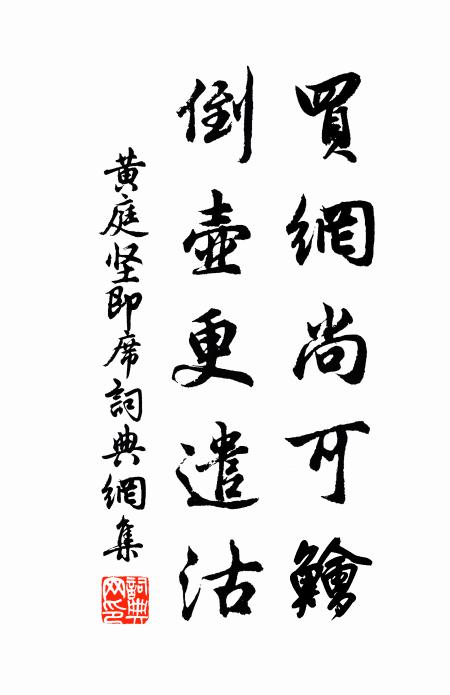 買網尚可鱠
倒壺更遣沽
黄庭坚即席詞典網集
詞典网印